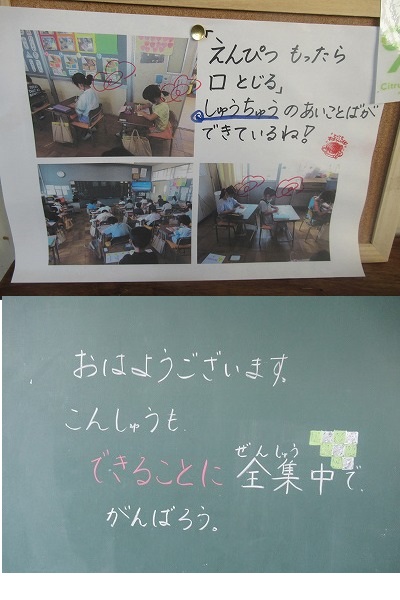 「、
えんぴつ もったら
口 とじる」
しゅうちゅう のあいことばが
できているね!
おはようございます。
こんしゅうも、
できることに 全集中で、
ぜんしゅう
がんばろう。